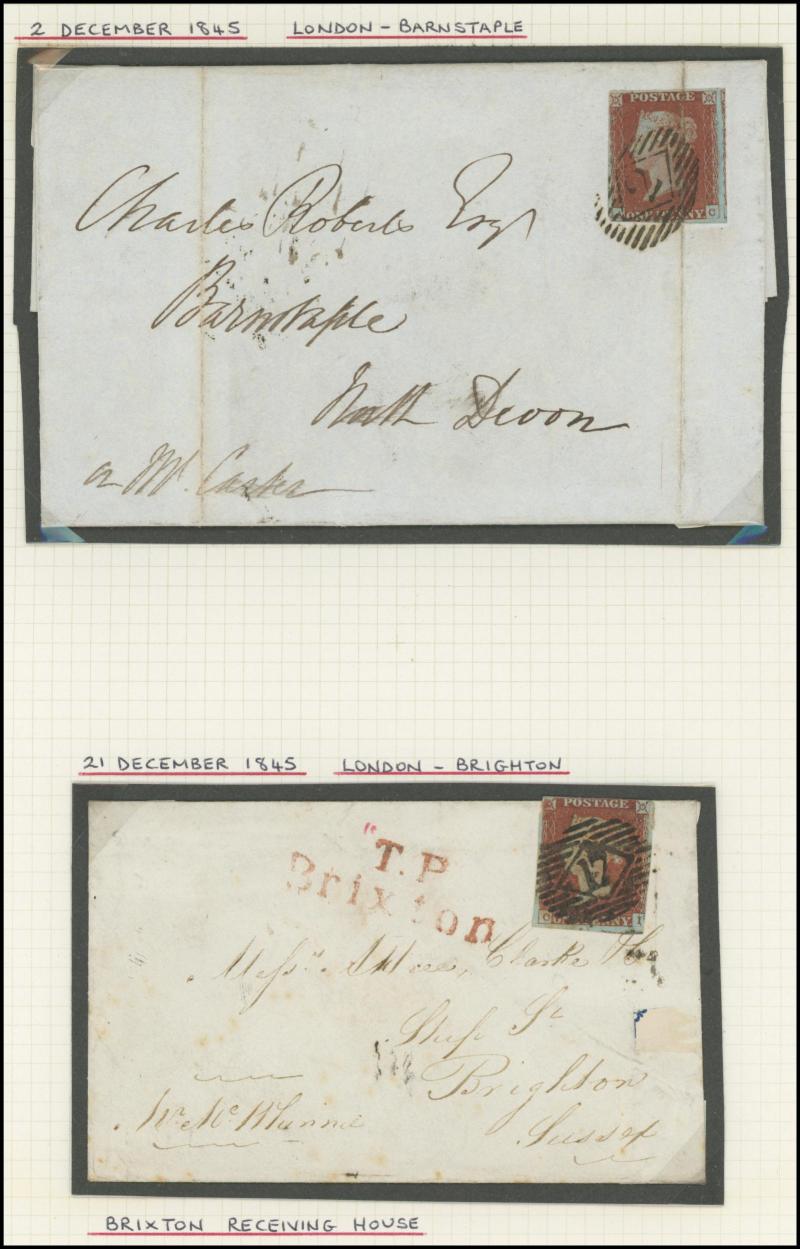 2 DECEMBER 1845 LONDON - BARNSTAPLE
POSTAGE
ONE PENNY C
Charles Roberts Esqr
Barnstaple
North Devon
or Mr.
21 DECEMBER 1845 LONDON - BRIGHTON
POSTAGE
T.P
Brixton
17
C ONE PENNY I
Messrs. Clarke & Co
Ship St
Brighton
Sussex
BRIXTON RECEIVING HOUSE